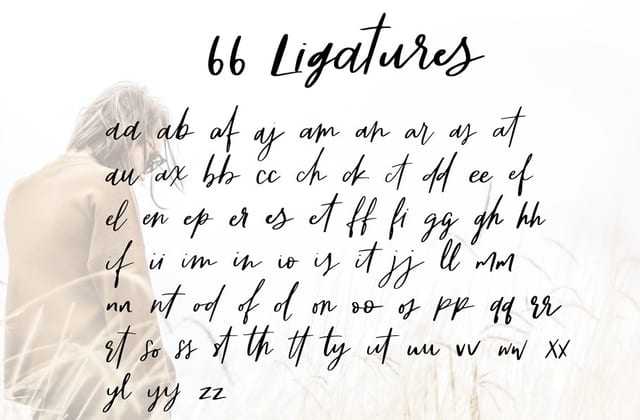 66 Ligatures
aa ab af aj am an ar as at
au ax bb cc ch ck ct dd ee ef
el en ep er es et ff fi gg gh hh
if ii im in io is it jj ll mm
nn nt od of ol on oo os pp qq rr
rt so ss st th tt ty ut uu vv ww xx
yl yy zz